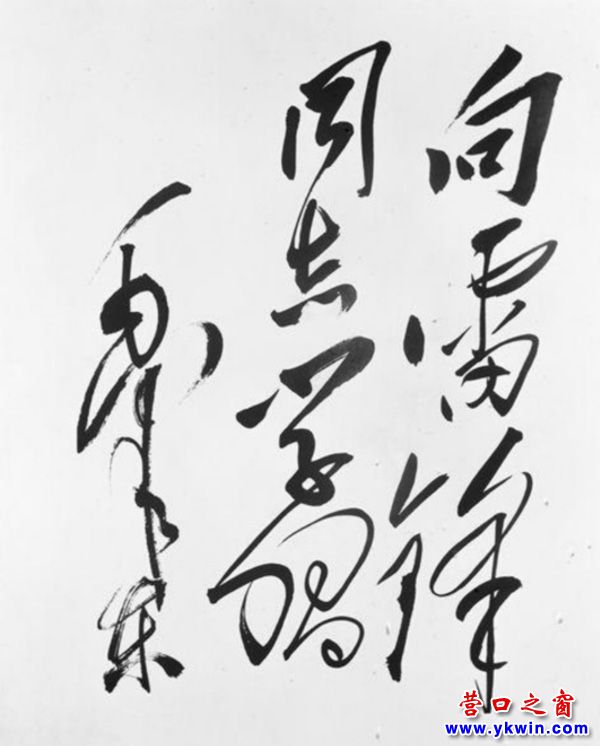 向雷锋
同志学习
毛泽东
营口之窗
www.ykwin.com